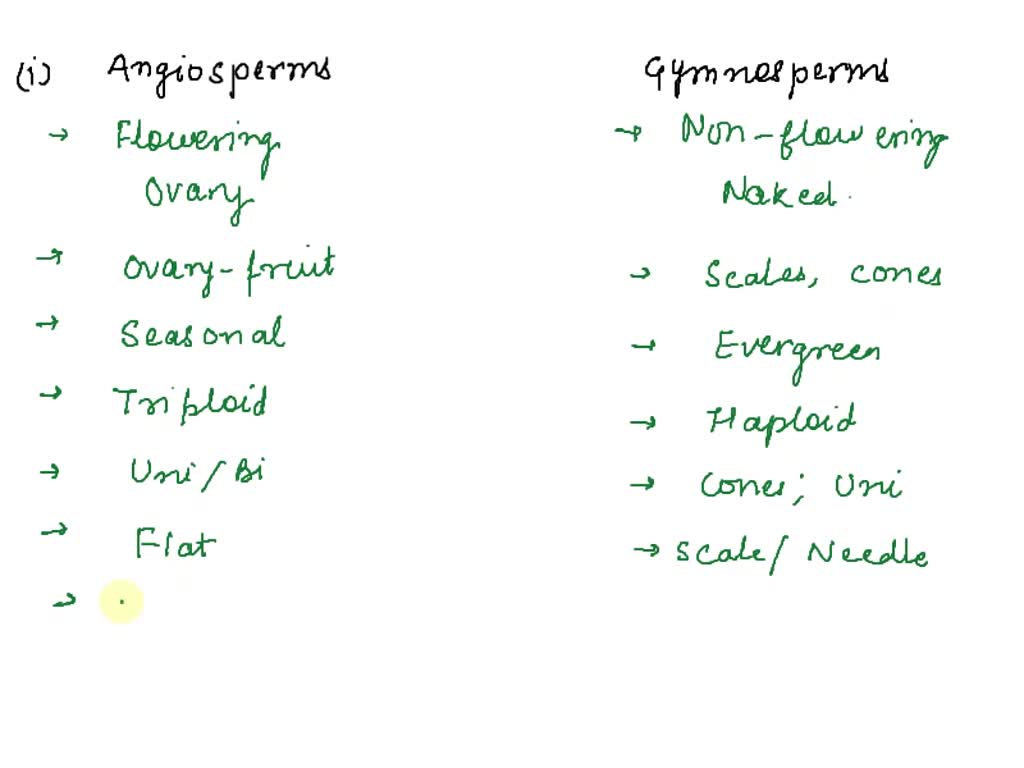 (i) Angiosperms Gymnosperms
→ Flowering → Non-flowering
Ovary Naked
→ Ovary-fruit → Scales, cones
→ Seasonal → Evergreen
→ Triploid → Haploid
→ Uni/Bi → Cones; Uni
→ Flat → Scale/Needle
→